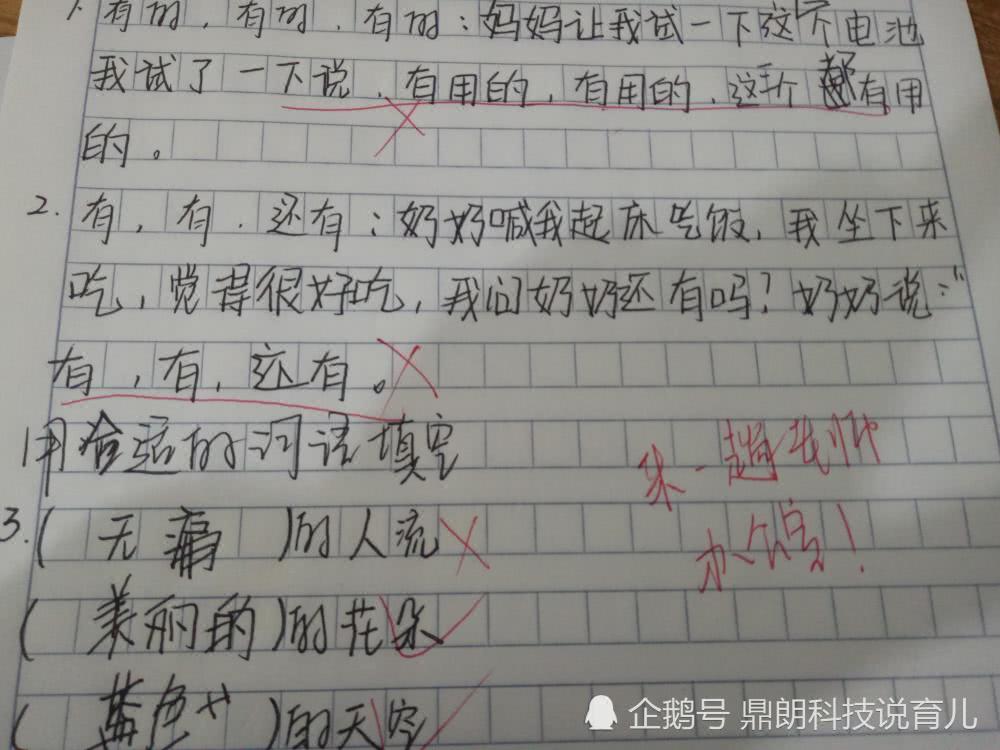 1.有的,有的,有的:妈妈让我试一下这个电池
我试了一下说,有用的,有用的,这个都有用
的。
2.有,有,还有:奶奶喊我起床吃饭,我坐下来
吃,觉得很好吃,我问奶奶还有吗?奶奶说:“
有,有,还有。
用合适的词语填空
来一趟老师
办公室!
3.(无痛)的人流
(美丽的)的花朵
(蓝色)的天空
企鹅号 鼎朗科技说育儿